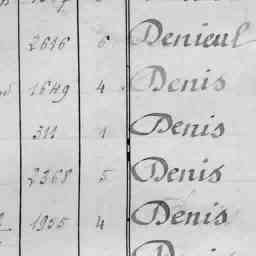 2616 6 Denieul
1649 4 Denis
311 1 Denis
2368 5 Denis
1955 4 Denis